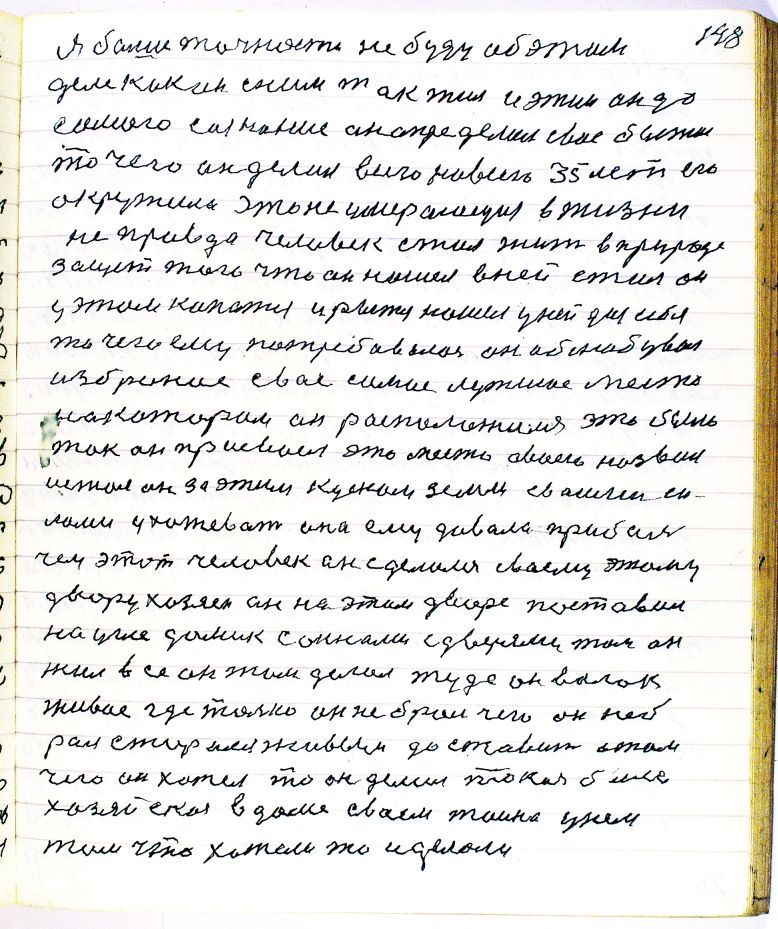 148
Я балше точности не буду об этом
деле как он сним так жил и этим он до
самого сознание он определил свое бытие
то чего он делал вего навсего 35 лет его
окружила это не умералощия в жизни
не правда человек стал жит в природе
защет того что он нашел в ней стал он
у этом капатся и рытся нашел у ней для себя
то чего ему потребавалося он обнабувал
избраное свае самое лутшое место
на котором он расположился это быль
так он присвоел это место своего назвал
истал он за этим куском земли своими си-
лами ухожеват она ему давала прибыля
чем этот человек он сделался своему этому
двору хозяен он на этом дворе поставил
на угле домик сокнами сдверями там он
жил все он там делал туде он волок
живое где толко он не брал чего он не
старался живым доставит а там
чего он хотел то он делал такая была
хозяйская в доме своем таина унем
там что хотели то и делали